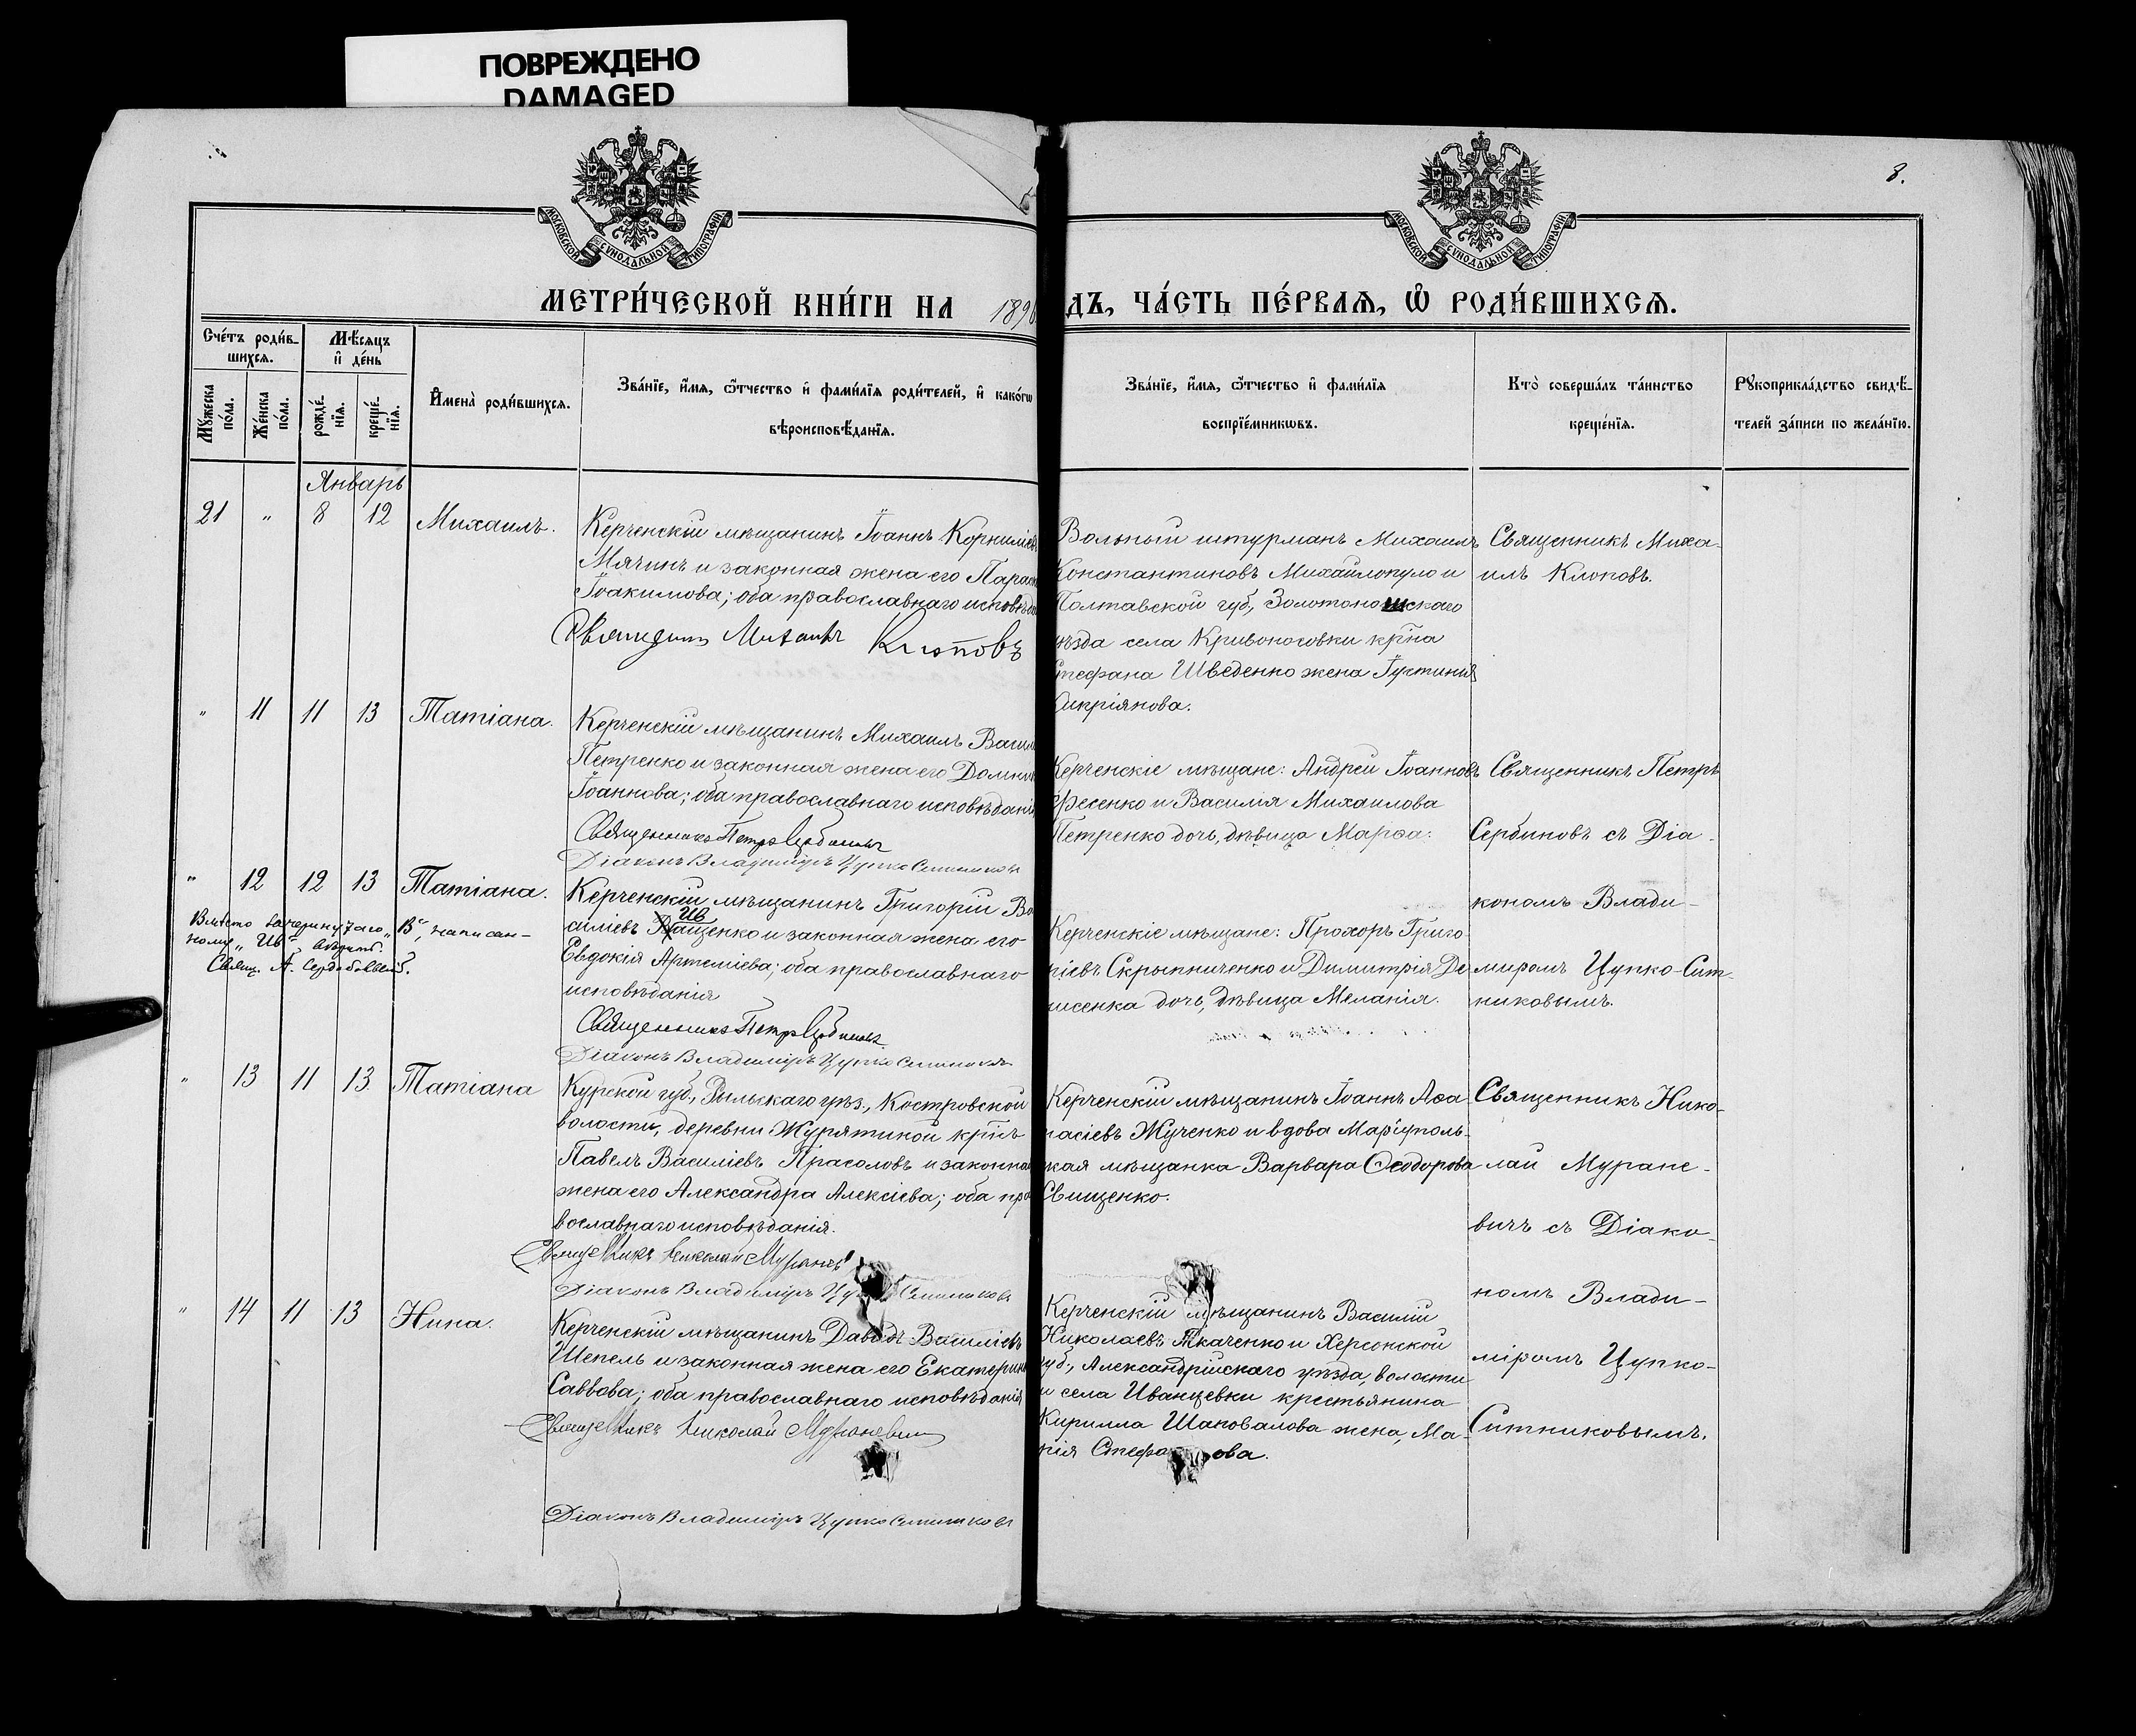 ПОВРЕЖДЕНО
DAMAGED
МОСКОВСКОЙ СѴНОДАЛЬНОЙ ТИПОГРАФІИ
МОСКОВСКОЙ СѴНОДАЛЬНОЙ ТИПОГРАФІИ
8.
МЕТРИ́ЧЕСКОЙ КНИ́ГИ НА 1896
ДЪ, ЧА́СТЬ ПЕ́РВАѦ, Ѡ҆ РОДИ́ВШИХСѦ.
Сче́тъ роди́в-
шихсѧ.
Мꙋ́жеска по́ла.
Же́нска по́ла.
Мѣ́сѧцъ
и҆ де́нь
рожде́-
нїѧ.
креще́-
нїѧ.
И҆мена̀ роди́вшихсѧ.
Зва́нїе, и҆́мѧ, ѻ҆́тчество и҆ фами́лїѧ роди́телей, и҆ како́гѡ
вѣроисповѣ́данїѧ.
Зва́нїе, и҆́мѧ, ѻ҆́тчество и҆ фами́лїѧ
воспрїе́мникѡвъ.
Кто̀ соверша́лъ та́инство
креще́нїѧ.
Рꙋкоприкла́дство свидѣ́-
телей за́писи по жела́нїю.
Январь
21 " 8 12 Михаилъ.
Керченскій мѣщанинъ Іоаннъ Корниліев
Мячинъ и законная жена его Параск
Іоакимова; оба православнаго исповѣда
Священникъ Михаилъ Клоповъ
Вольный штурманъ Михаилъ
Константиновъ Михайлопуло и
Полтавской губ., Золотоношскаго
уѣзда села Кривоносовки кр҃на
Стефана Шведенко жена Іустинія
Кипріянова.
Священникъ Миха-
илъ Клоповъ.
" 11 11 13 Татіана.
Керченскій мѣщанинъ Михаилъ Васил
Петренко и законная жена его Домник
Іоаннова; оба православнаго исповѣданія
Священникъ Петръ Сербиновъ
Діаконъ Владиміръ Цупко Ситниковъ
Керченскіе мѣщане: Андрей Іоанновъ
Фесенко и Василія Михаилова
Петренко дочь, дѣвица Марѳа.
Священникъ Петръ
Сербиновъ съ Діа-
кономъ Влади-
миромъ Цупко-Сит-
никовымъ.
" 12 12 13 Татіана.
Вмѣсто зачеркнутаго „В", написан-
ному „Ив" вѣрить.
Свящ. А.
Керченскій мѣщанинъ Григорій Ва
силіевъ Иващенко и законная жена его
Евдокія Артеміева; оба православнаго
исповѣданія
Священникъ Петръ Сербиновъ
Діаконъ Владиміръ Цупко Ситниковъ
Керченскіе мѣщане: Прохоръ Григо-
ріевъ Скрыпниченко и Димитрія Де
нисенка дочь, дѣвица Меланія.
" 13 11 13 Татіана
Курской губ., Рыльскаго уѣз., Костровской
волости, деревни Журятиной кр҃нъ
Павелъ Василіевъ Прасоловъ и законная
жена его Александра Алексіева; оба пра
вославнаго исповѣданія.
Священникъ Николай Мураневичъ
Діаконъ Владиміръ Цупко Ситниковъ
Керченскій мѣщанинъ Іоаннъ Аѳа
насіевъ Жученко и вдова Маріуполь-
ская мѣщанка Варвара Ѳеодорова
Свищенко.
Священникъ Нико-
лай Муране-
вичъ съ Діако-
номъ Влади-
міромъ Цупко-
Ситниковымъ.
" 14 11 13 Нина.
Керченскій мѣщанинъ Давидъ Василіевъ
Шепель и законная жена его Екатерина
Саввова; оба православнаго исповѣданія
Священникъ Николай Мураневичъ
Діаконъ Владиміръ Цупко Ситниковъ
Керченскій мѣщанинъ Василій
Николаевъ Ткаченко и Херсонской
губ., Александрійскаго уѣзда, волости
и села Иванцевки крестьянина
Кирилла Шаповалова жена, Ма-
рія Стефанова.